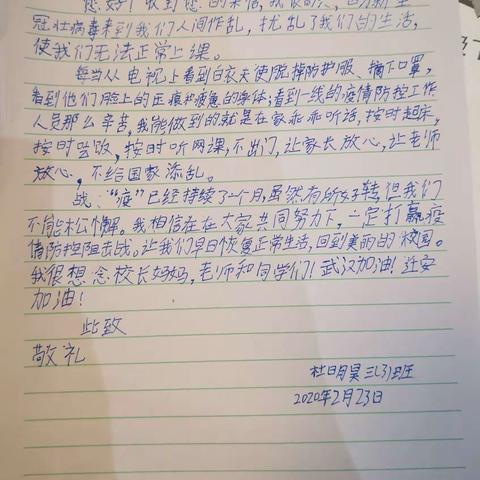 您好！收到您的来信，我很
冠状病毒来到我们人间作乱，扰乱了我们的生活，
使我们无法正常上课。
每当从电视上看到白衣天使脱掉防护服、摘下口罩，
看到他们脸上的压痕和疲惫的身体；看到一线的疫情防控工作
人员那么辛苦，我能做到的就是在家乖乖听话，按时起床，
按时吃饭，按时听网课，不出门，让家长放心，让老师
放心，不给国家添乱。
战："疫"已经持续了一个月，虽然有所好转，但我们
不能松懈。我相信在在大家共同努力下，一定打赢疫
情防控阻击战。让我们早日恢复正常生活，回到美丽的校园。
我很想念校长妈妈，老师和同学们！武汉加油！迁安
加油！
此致
敬礼
杜明昊三（3）班
2020年2月23日